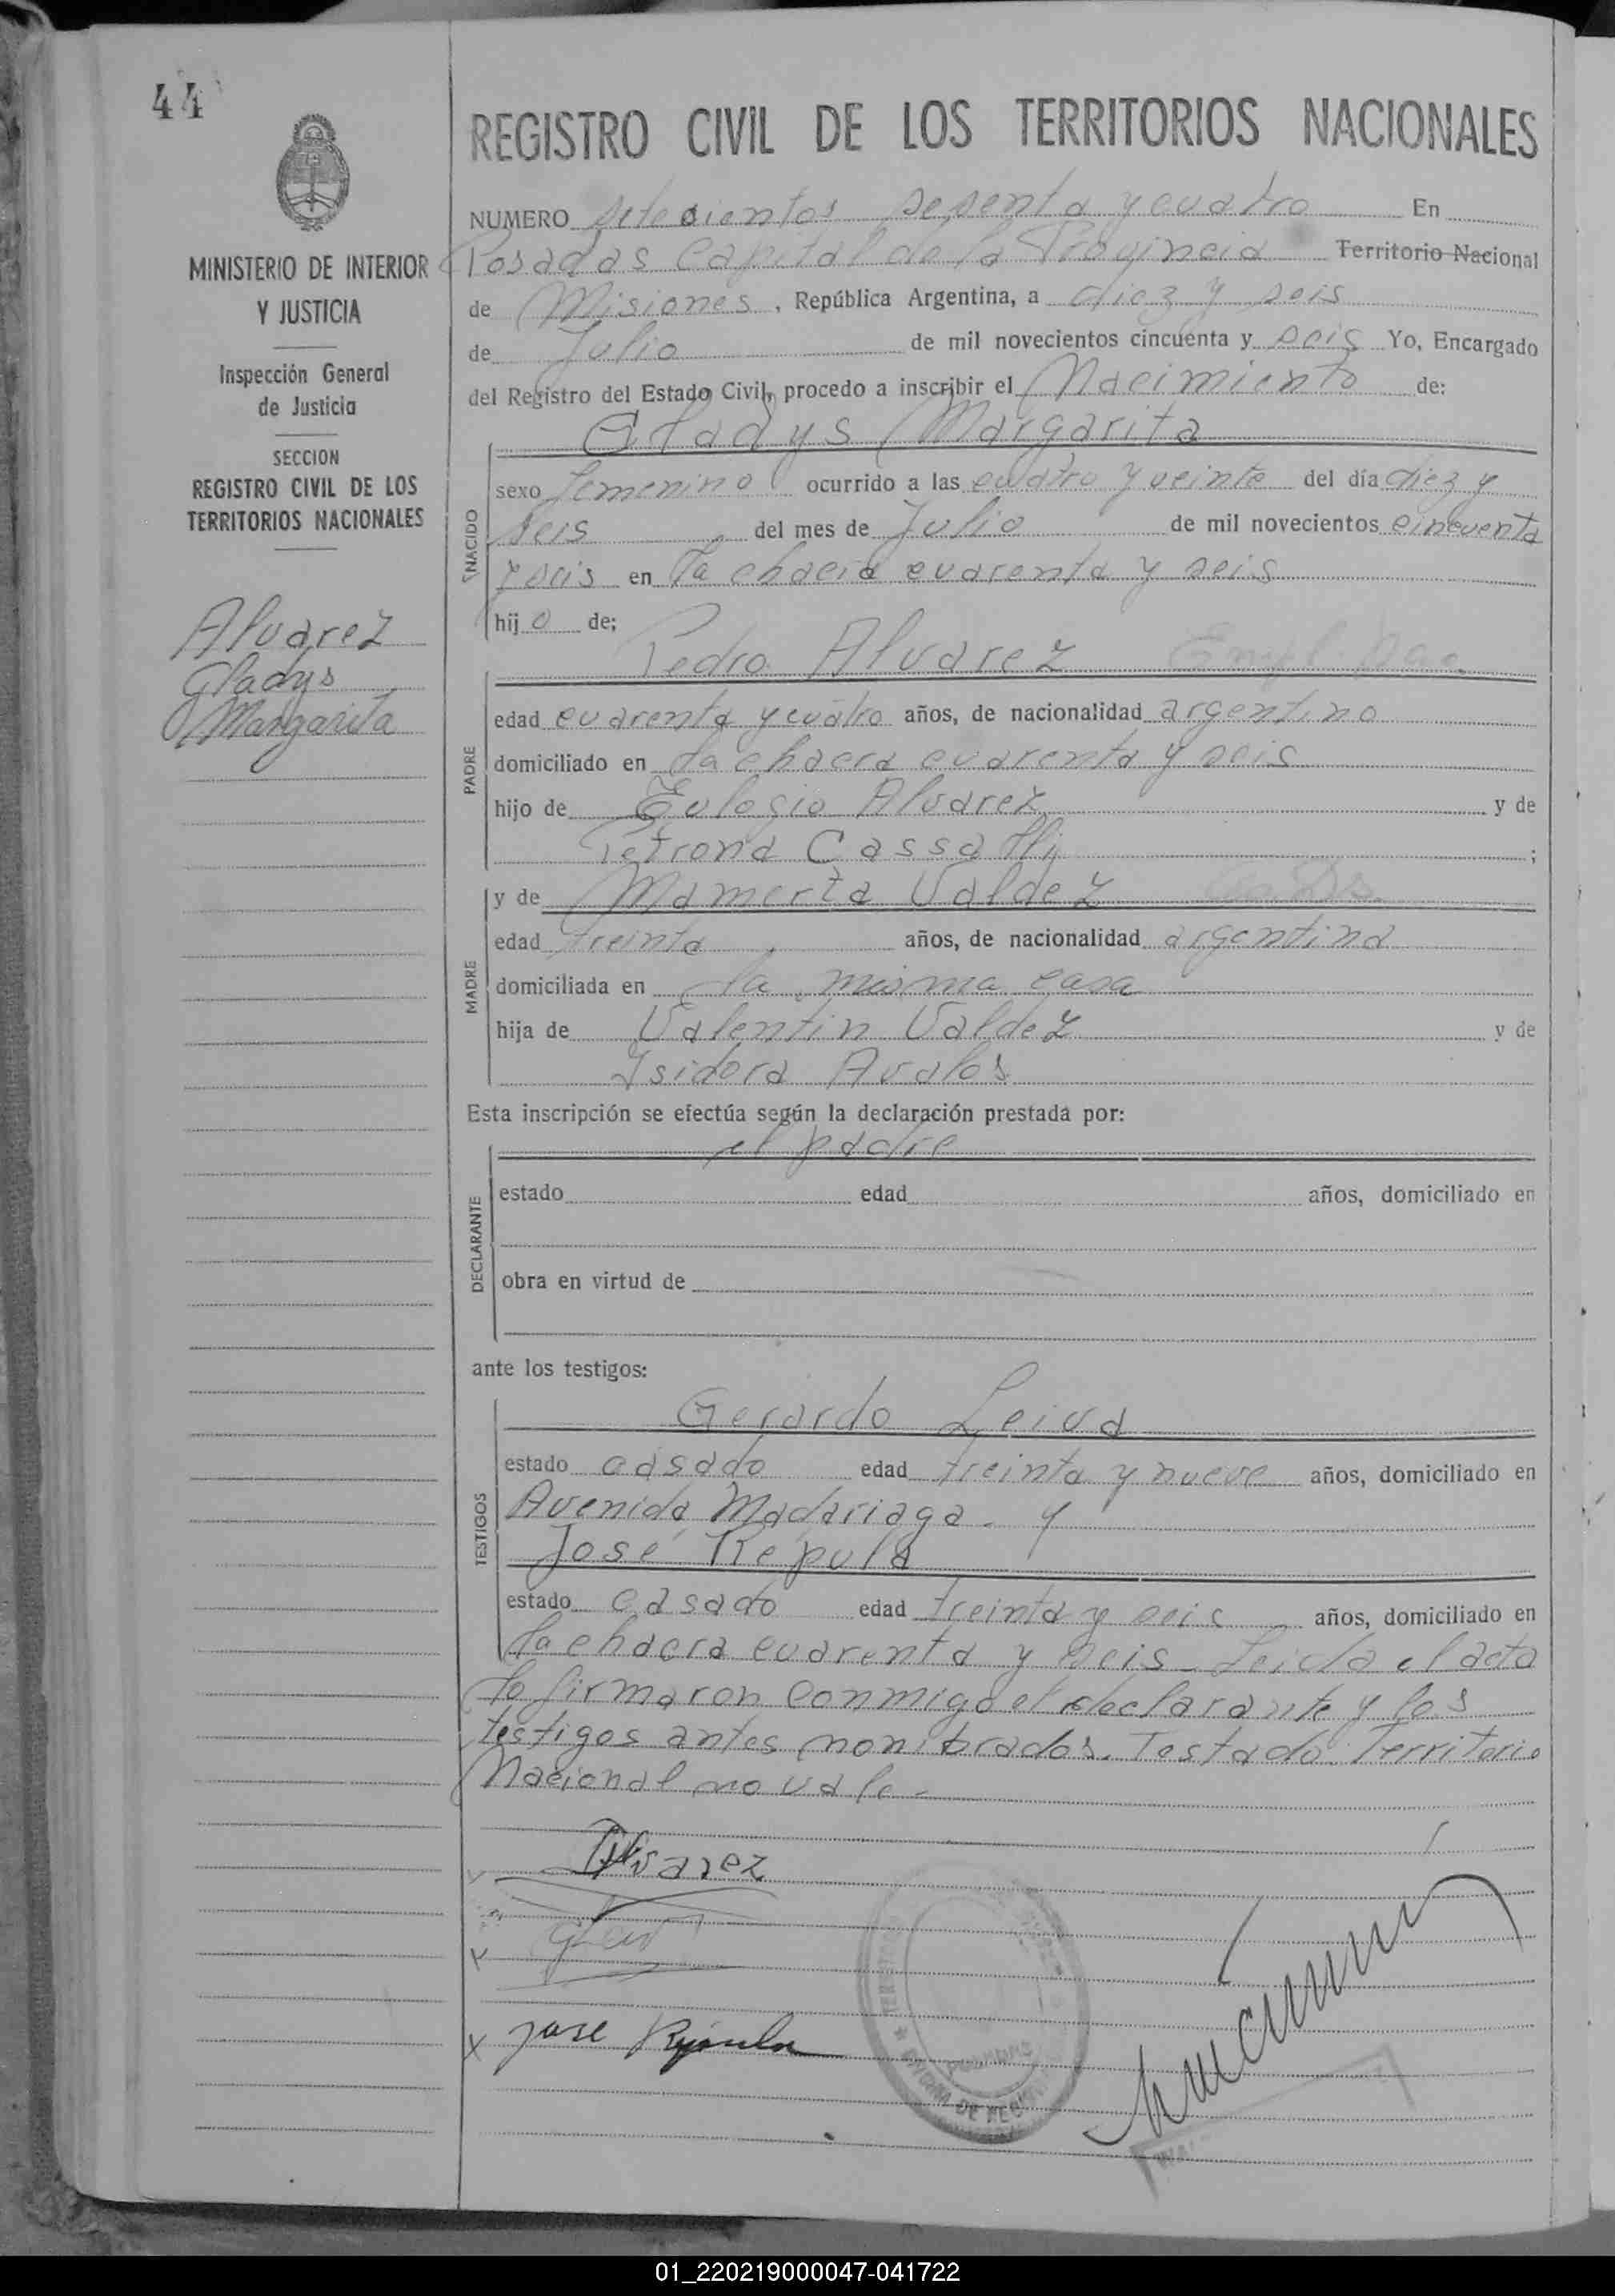 44
REGISTRO CIVIL DE LOS TERRITORIOS NACIONALES
MINISTERIO DE INTERIOR
Y JUSTICIA
Inspección General
de Justicia
SECCION
REGISTRO CIVIL DE LOS
TERRITORIOS NACIONALES
Alvarez
Gladys
Margarita
NUMERO setecientos sesenta y cuatro En
Posadas Capital de la Provincia Territorio Nacional
de Misiones, República Argentina, a diez y seis
de Julio de mil novecientos cincuenta y seis Yo, Encargado
del Registro del Estado Civil, procedo a inscribir el Nacimiento de:
Gladys Margarita
NACIDO
sexo femenino ocurrido a las cuatro y veinte del día diez y
seis del mes de Julio de mil novecientos cincuenta
y seis en la chacra cuarenta y seis
hij o de:
Pedro Alvarez Empl.
PADRE
edad cuarenta y cuatro años, de nacionalidad argentino
domiciliado en la chacra cuarenta y seis
hijo de Eulogio Alvarez y de
Petrona Cassatti;
y de Mamerta Valdez
MADRE
edad treinta, años, de nacionalidad argentina
domiciliada en la misma casa
hija de Valentin Valdez y de
Isidora Avalos
Esta inscripción se efectúa según la declaración prestada por:
el padre
DECLARANTE
estado edad años, domiciliado en
obra en virtud de
ante los testigos:
Gerardo Leiva
TESTIGOS
estado casado edad treinta y nueve años, domiciliado en
Avenida Madariaga - y
José Repula
estado casado edad treinta y seis años, domiciliado en
la chacra cuarenta y seis - Leida el acta
la firmaron conmigo el declarante y los
testigos antes nombrados. Testado: Territorio
Nacional no vale -
Alvarez
Jose
POSADAS
01_220219000047-041722